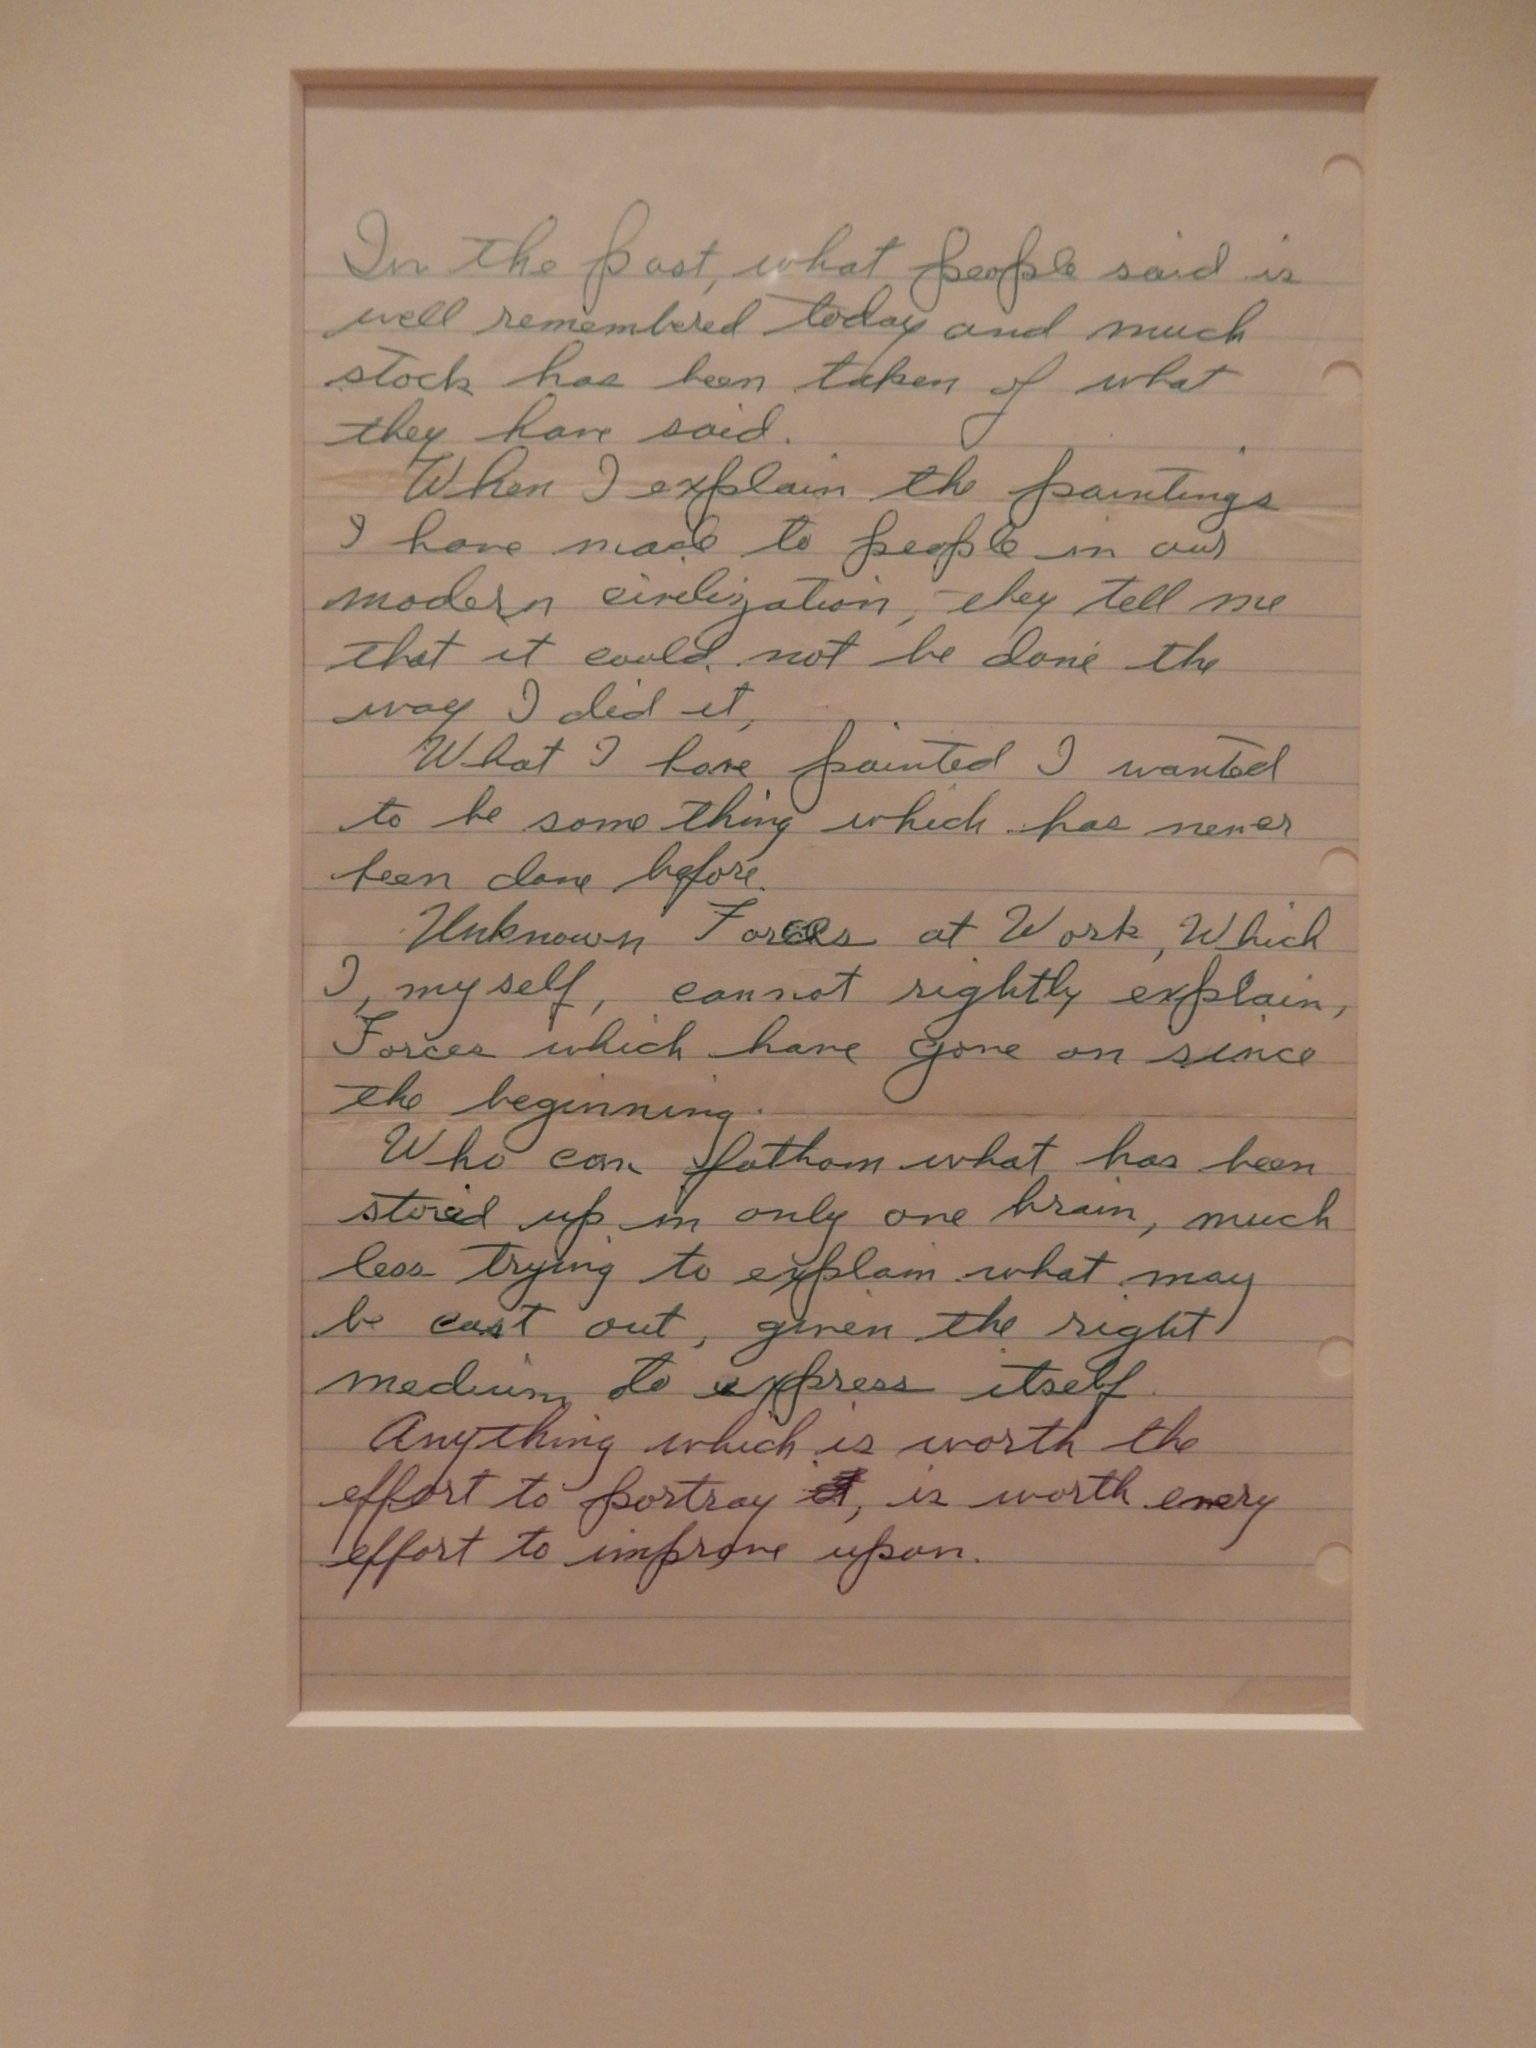 In the past, what people said is
well remembered today and much
stock has been taken of what
they have said.
When I explain the paintings
I have made to people in our
modern civilization, they tell me
that it could not be done the
way I did it,
What I have painted I wanted
to be some thing which has never
been done before.
Unknown Forces at Work, Which
I, my self, cannot rightly explain,
Forces which have gone on since
the beginning.
Who can fathom what has been
stored up in only one brain, much
less trying to explain what may
be cast out, given the right
medium to express itself.
Anything which is worth the
effort to portray it, is worth every
effort to improve upon.